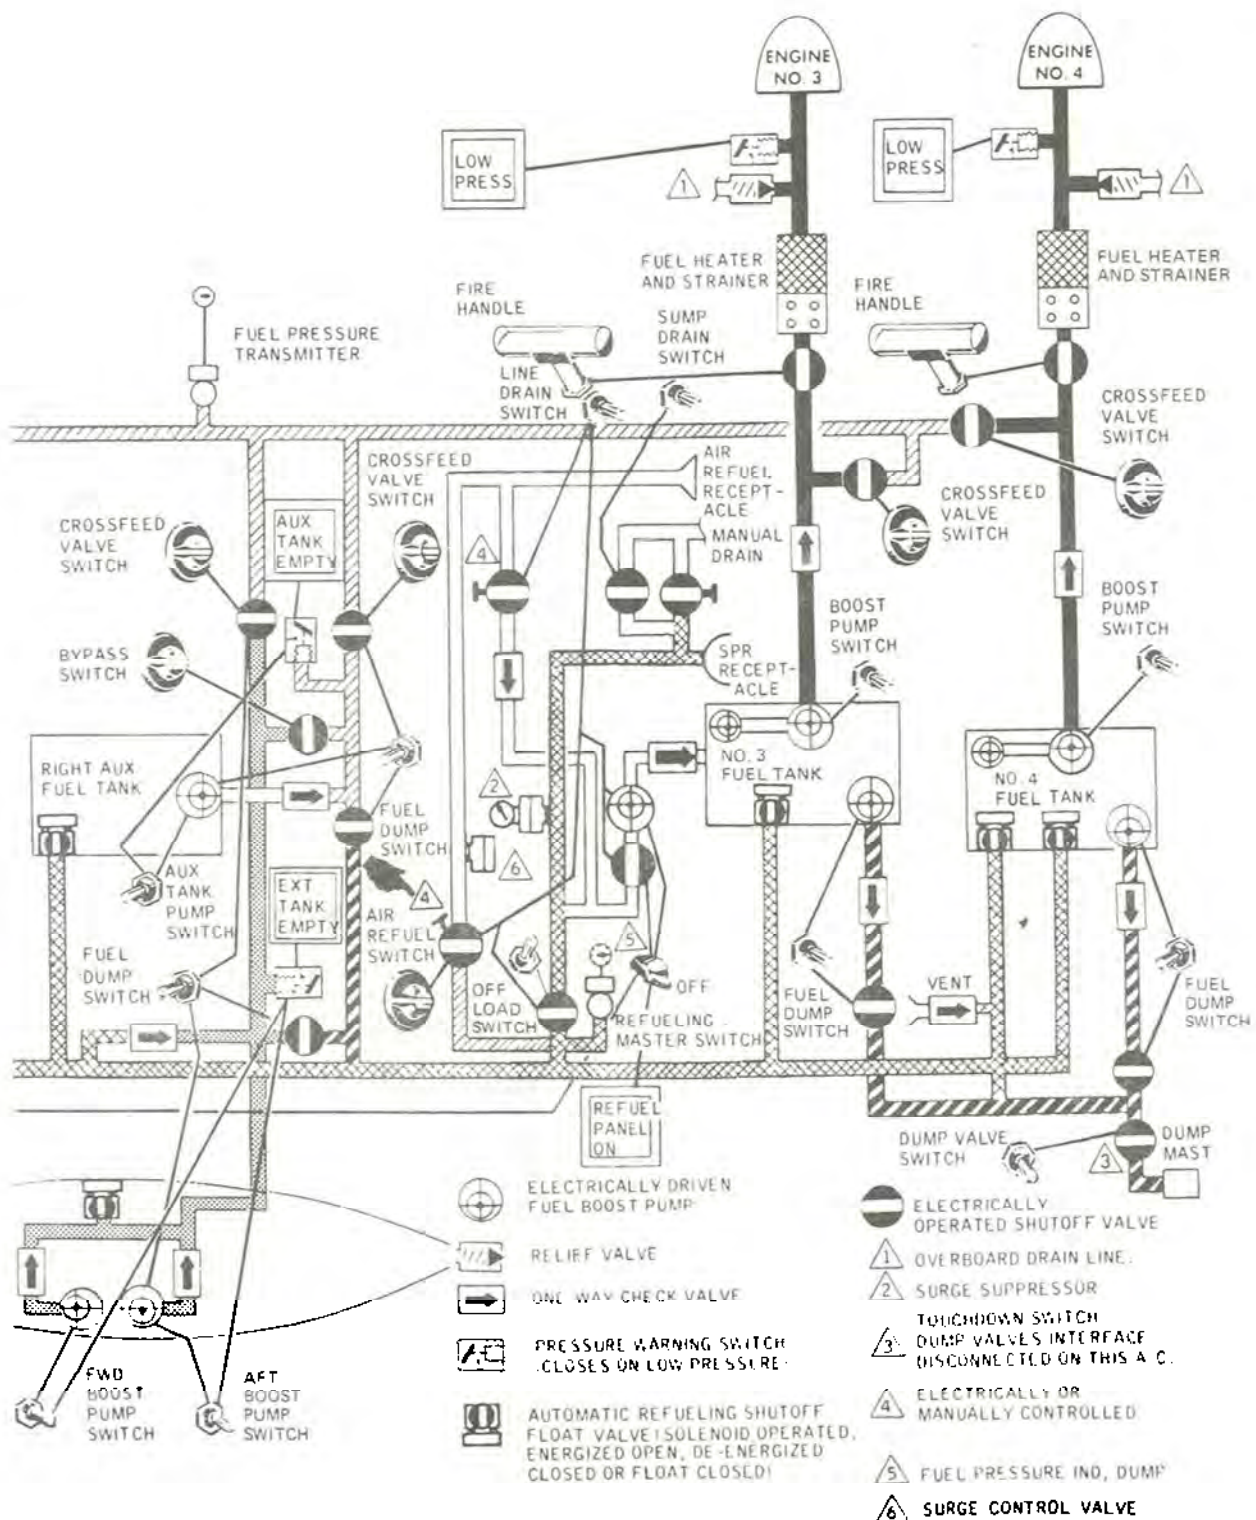 ENGINE
NO. 3
ENGINE
NO. 4
LOW
PRESS
LOW
PRESS
1
1
FUEL HEATER
AND STRAINER
FUEL HEATER
AND STRAINER
FIRE
HANDLE
SUMP
DRAIN
SWITCH
FIRE
HANDLE
FUEL PRESSURE
TRANSMITTER
LINE
DRAIN
SWITCH
CROSSFEED
VALVE
SWITCH
CROSSFEED
VALVE
SWITCH
AIR
REFUEL
RECEPT-
ACLE
CROSSFEED
VALVE
SWITCH
CROSSFEED
VALVE
SWITCH
AUX
TANK
EMPTY
4
MANUAL
DRAIN
BOOST
PUMP
SWITCH
BOOST
PUMP
SWITCH
BYPASS
SWITCH
SPR
RECEPT-
ACLE
RIGHT AUX
FUEL TANK
NO. 3
FUEL TANK
NO. 4
FUEL TANK
2
FUEL
DUMP
SWITCH
6
AUX
TANK
PUMP
SWITCH
EXT
TANK
EMPTY
4
AIR
REFUEL
SWITCH
5
FUEL
DUMP
SWITCH
OFF
LOAD
SWITCH
OFF
REFUELING
MASTER SWITCH
FUEL
DUMP
SWITCH
VENT
FUEL
DUMP
SWITCH
REFUEL
PANEL
ON
DUMP VALVE
SWITCH
3
DUMP
MAST
ELECTRICALLY DRIVEN
FUEL BOOST PUMP
RELIEF VALVE
ONE WAY CHECK VALVE
PRESSURE WARNING SWITCH
(CLOSES ON LOW PRESSURE)
AUTOMATIC REFUELING SHUTOFF
FLOAT VALVE (SOLENOID OPERATED,
ENERGIZED OPEN, DE-ENERGIZED
CLOSED OR FLOAT CLOSED)
ELECTRICALLY
OPERATED SHUTOFF VALVE
1 OVERBOARD DRAIN LINE.
2 SURGE SUPPRESSOR
TOUCHDOWN SWITCH
3 DUMP VALVES INTERFACE
DISCONNECTED ON THIS A.C.
ELECTRICALLY OR
4 MANUALLY CONTROLLED
5 FUEL PRESSURE IND, DUMP
6 SURGE CONTROL VALVE
FWD
BOOST
PUMP
SWITCH
AFT
BOOST
PUMP
SWITCH